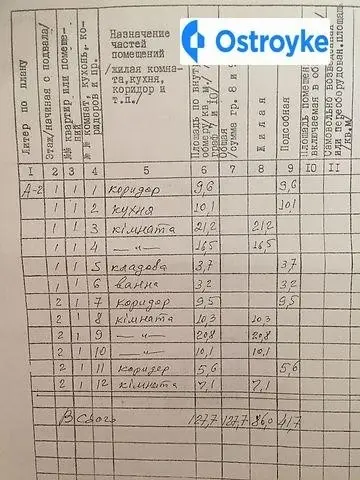 Ostroyke
Литер по плану
Этаж/начиная с подвала/
№№ квартир или помещений
№ № комнат, кухонь, коридоров и пр.
Назначение
частей
помещений
/жилая комна-
та, кухня,
коридор и
т.п./
Площадь по внут.
обмеру/кв. м./
общая
/сумма гр. 8 и 9
Жилая
Подсобная
Площадь помещен
включаемая в об
Самовольно возведенная
или переоборудован. площадь
/кв. м/
I 2 3 4 5 6 7 8 9 10 II
А-2 1 1 1 коридор 9,6 9,6
1 1 2 кухня 10,1 10,1
1 1 3 кімната 21,2 21,2
1 1 4 —"— 16,5 16,5
1 1 5 кладова 3,7 3,7
1 1 6 ванна 3,2 3,2
2 1 7 коридор 9,5 9,5
2 1 8 кімната 10,3 10,3
2 1 9 —"— 20,8 20,8
2 1 10 —"— 10,1 10,1
2 1 11 коридор 5,6 5,6
2 1 12 кімната 7,1 7,1
Всього 127,7 127,7 86,0 41,7